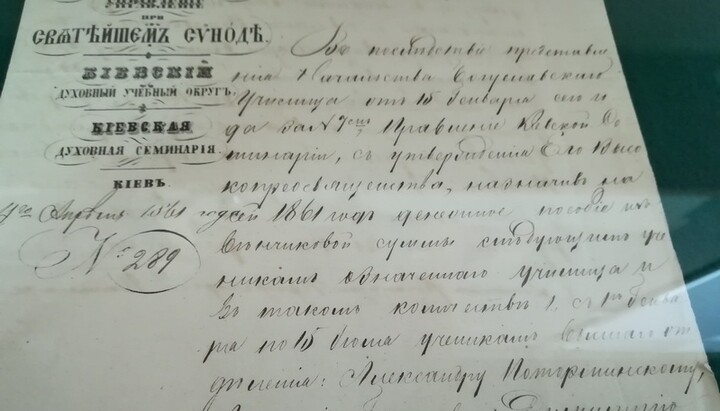 УПРАВЛЕНІЕ
ПРИ
СВЯТѢЙШЕМЪ СѴНОДѢ.
КІЕВСКІЙ
ДУХОВНЫЙ УЧЕБНЫЙ ОКРУГЪ.
КІЕВСКАЯ
ДУХОВНАЯ СЕМИНАРІЯ.
КІЕВЪ.
Апрѣля 1861 года
№ 289
Въ послѣдствіе представле
нія Начальства Богуславскаго
Училища отъ 15 Генваря сего го
да за № 7мъ, Правленіе Кіевской Се
минаріи, съ утвержденія Его Высо
копреосвященства, назначивъ на
сей 1861 годъ денежное пособіе изъ
Вѣнчиковой суммы слѣдующимъ уче
никамъ означеннаго училища и
въ такомъ количествѣ 1, съ 1 Генва
ря по 15 Іюля ученикамъ Высшаго от
дѣленія: Александру